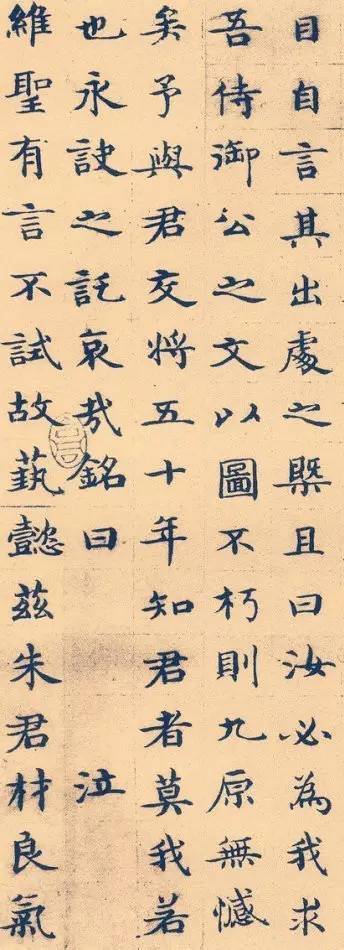 目自言其出處之槩且曰汝必為我求
吾侍御公之文以圖不朽則九原無憾
矣予與君交將五十年知君者莫我若
也永訣之託哀哉銘曰　泣
維聖有言不試故藝懿茲朱君材良氣